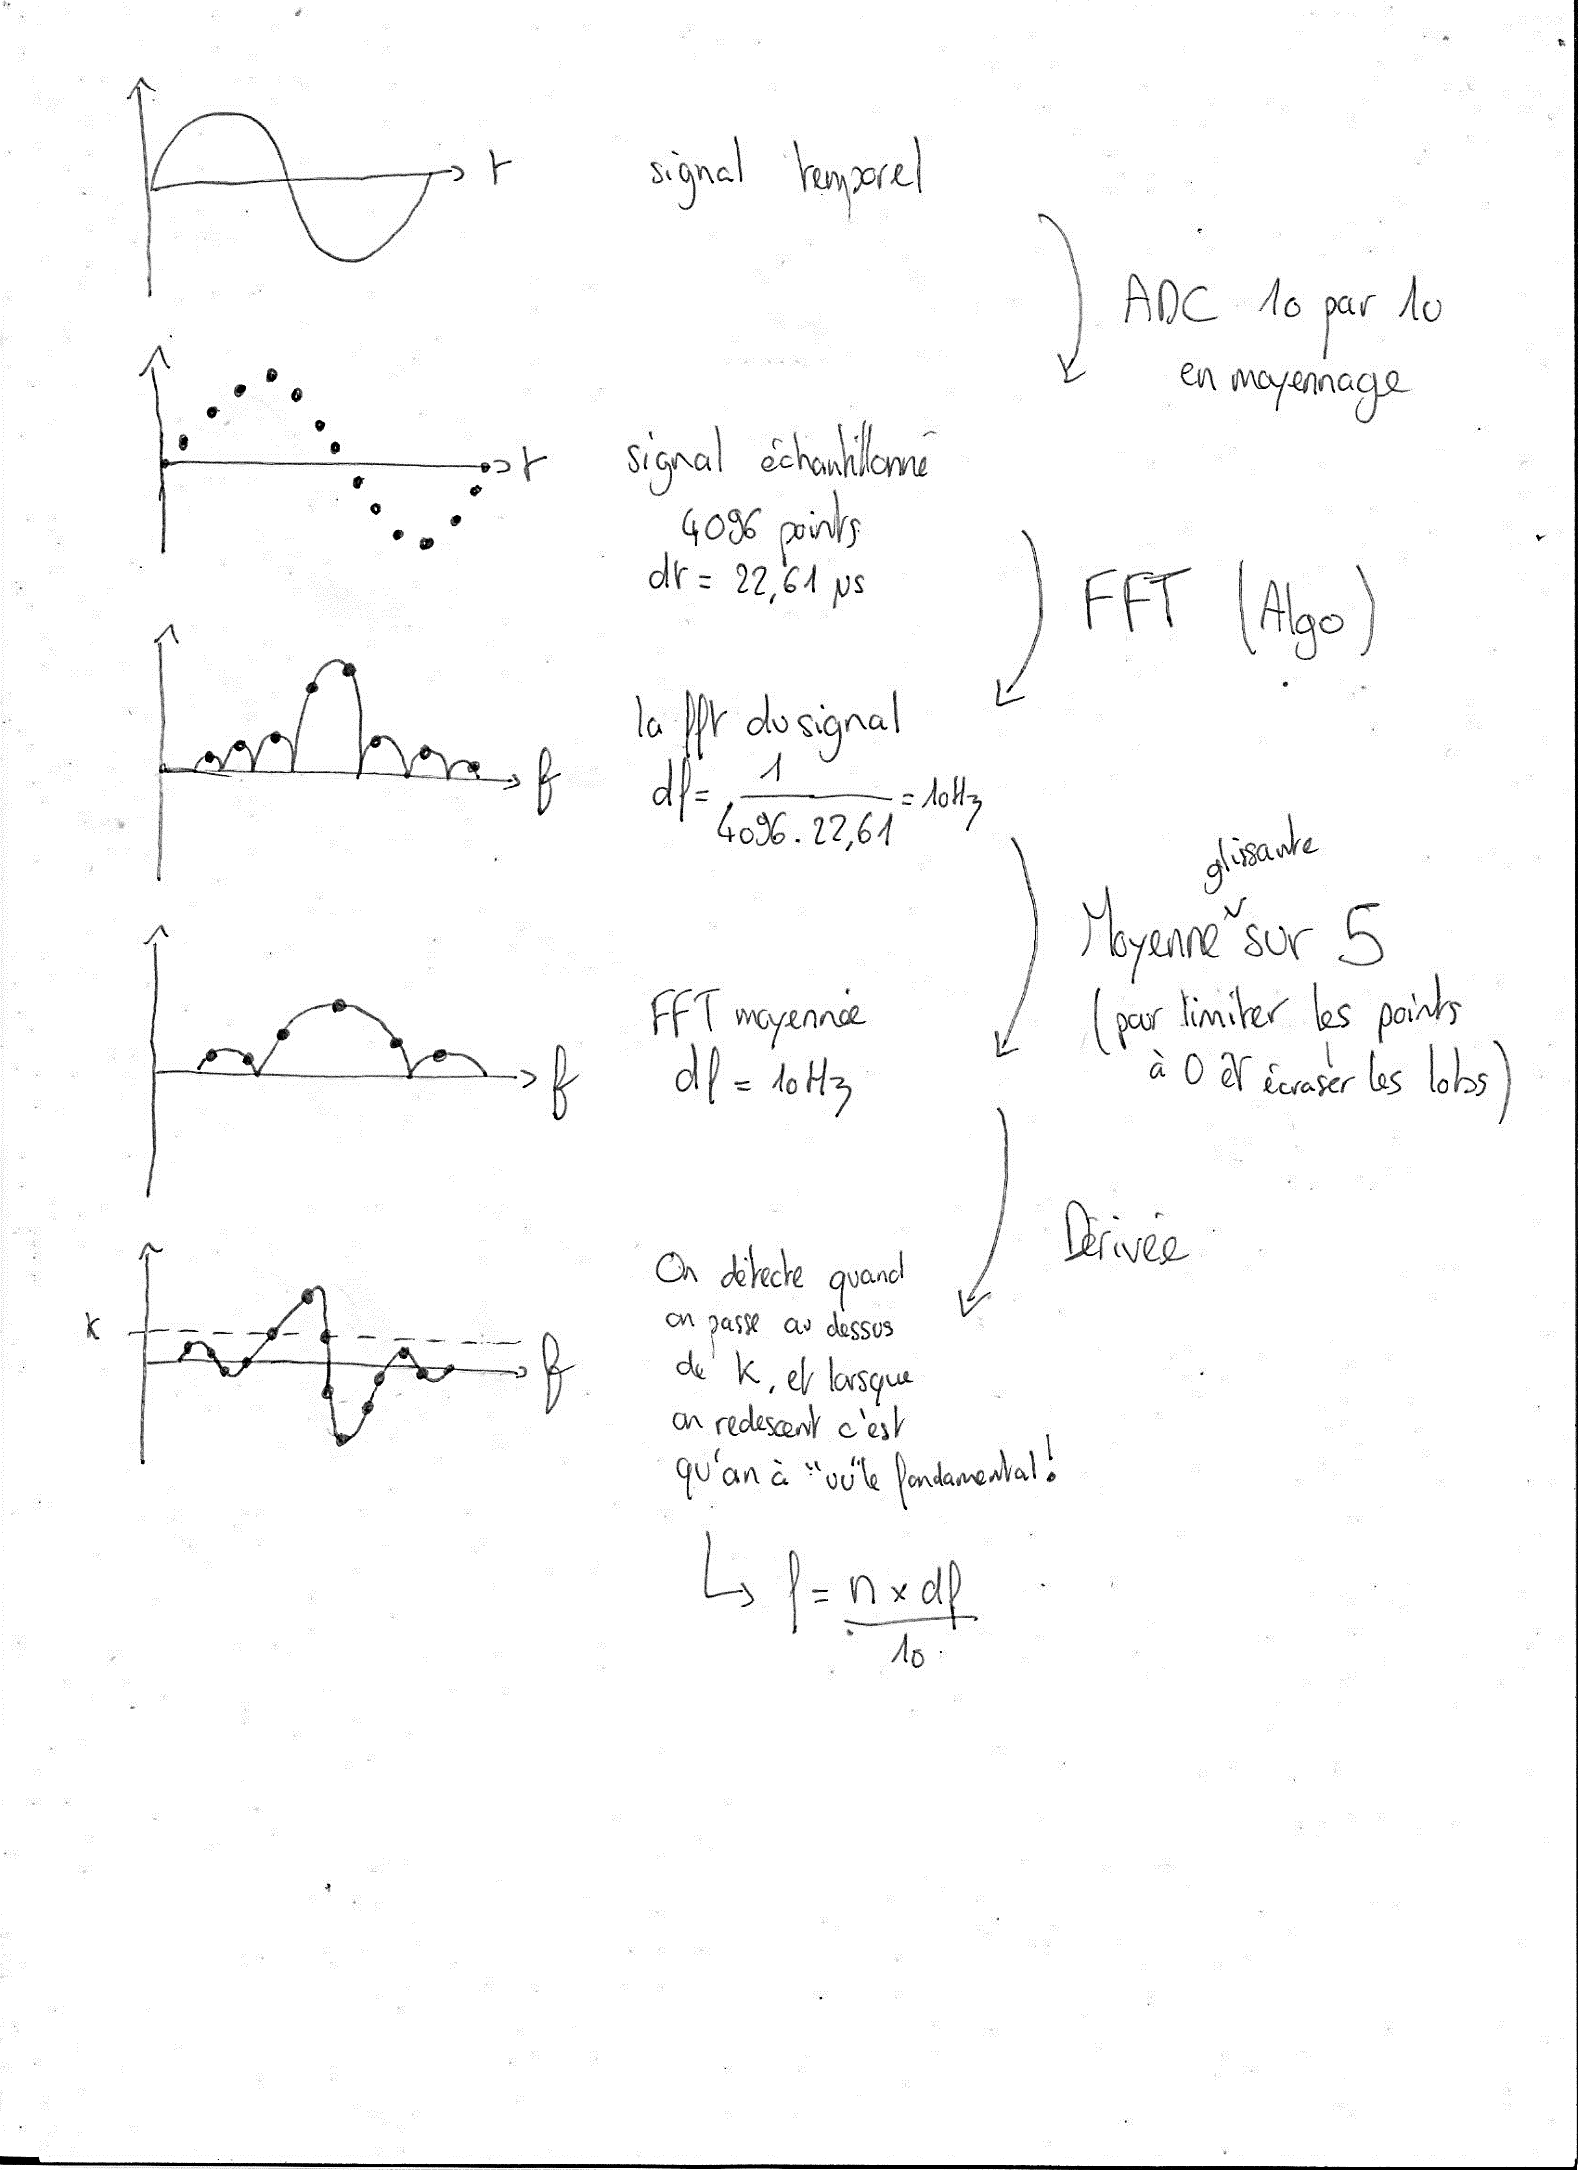 t
signal temporel
ADC 10 par 10
en moyennage
t
signal échantillonné
4096 points
dt = 22,61 µs
FFT (Algo)
f
la fft du signal
df = 1 / 4096 . 22,61 = 10Hz
glissante
Moyenne ˅ sur 5
(pour limiter les points
à 0 et écraser les lobs)
f
FFT moyennée
df = 10Hz
Dérivée
K
f
On détecte quand
on passe au dessus
de K, et lorsque
on redescent c'est
qu'on à "vu" le fondamental!
f = n x df / 10